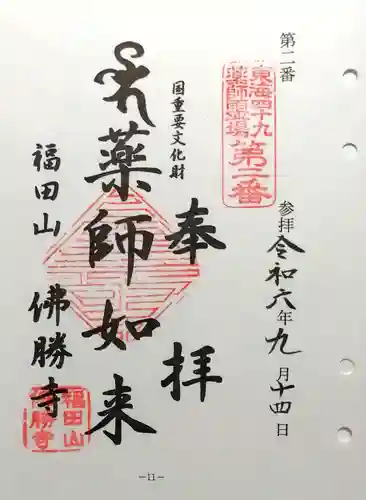 第二番
東海四十九
薬師霊場
第二番
参拝 令和六年九月十四日
国重要文化財
奉拝
薬師如来
福田山 佛勝寺
福田山
佛勝寺
—11—